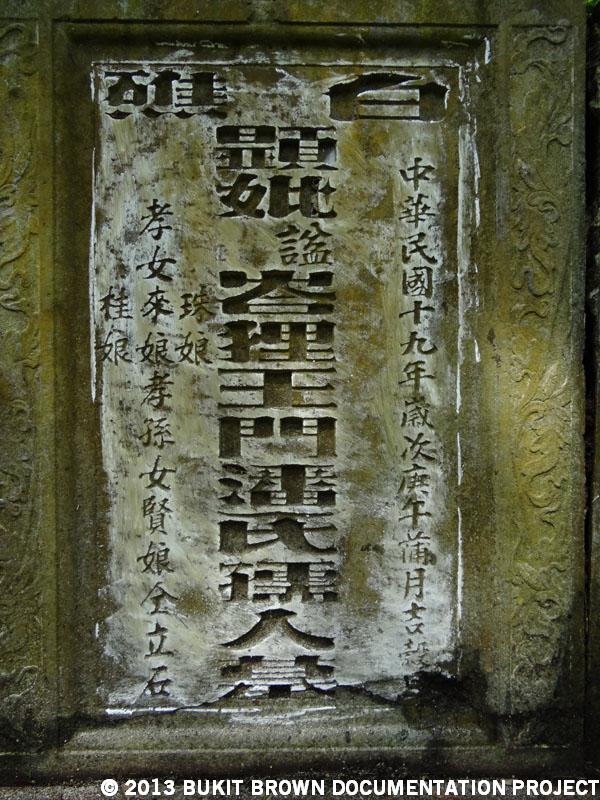 白礁
中華民國十九年歲次庚午蒲月吉穀
顯妣謚
王門潘氏孺人墓
珠娘
孝女來娘孝孫女賢娘仝立石
桂娘
© 2013 BUKIT BROWN DOCUMENTATION PROJECT